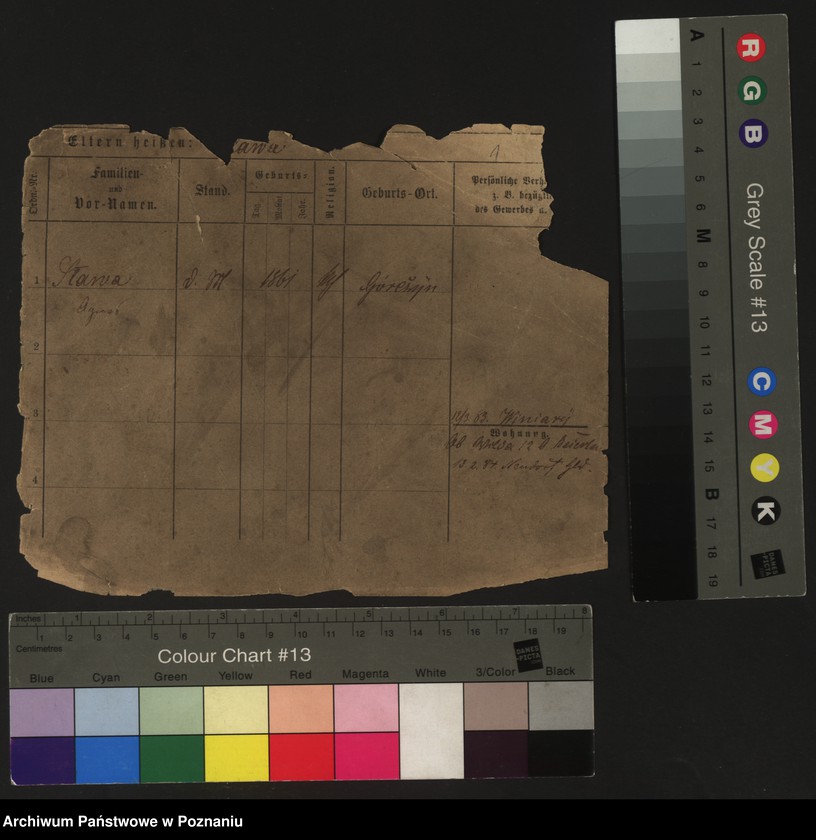 Eltern heißen:
awa
Ordn.-Nr.
Familien-
und
Vor-Namen.
Stand.
Geburts-
Tag.
Monat
Jahr.
Religion.
Geburts-Ort.
Persönliche Verh
z. B. bezügli
des Gewerbes u.
1 Stawa D. M 1861 Górczyn
2
3
4
Winiary
Wohnung
A
1
2
3
4
5
6
M
8
9
10
11
12
13
14
15
B
17
18
19
R
G
B
Grey Scale #13
C
M
Y
K
DANES
PICTA
Inches 1 2 3 4 5 6 7 8
Centimetres 1 2 3 4 5 6 7 8 9 10 11 12 13 14 15 16 17 18 19
Colour Chart #13
DANES
PICTA
Blue Cyan Green Yellow Red Magenta White 3/Color Black
Archiwum Państwowe w Poznaniu